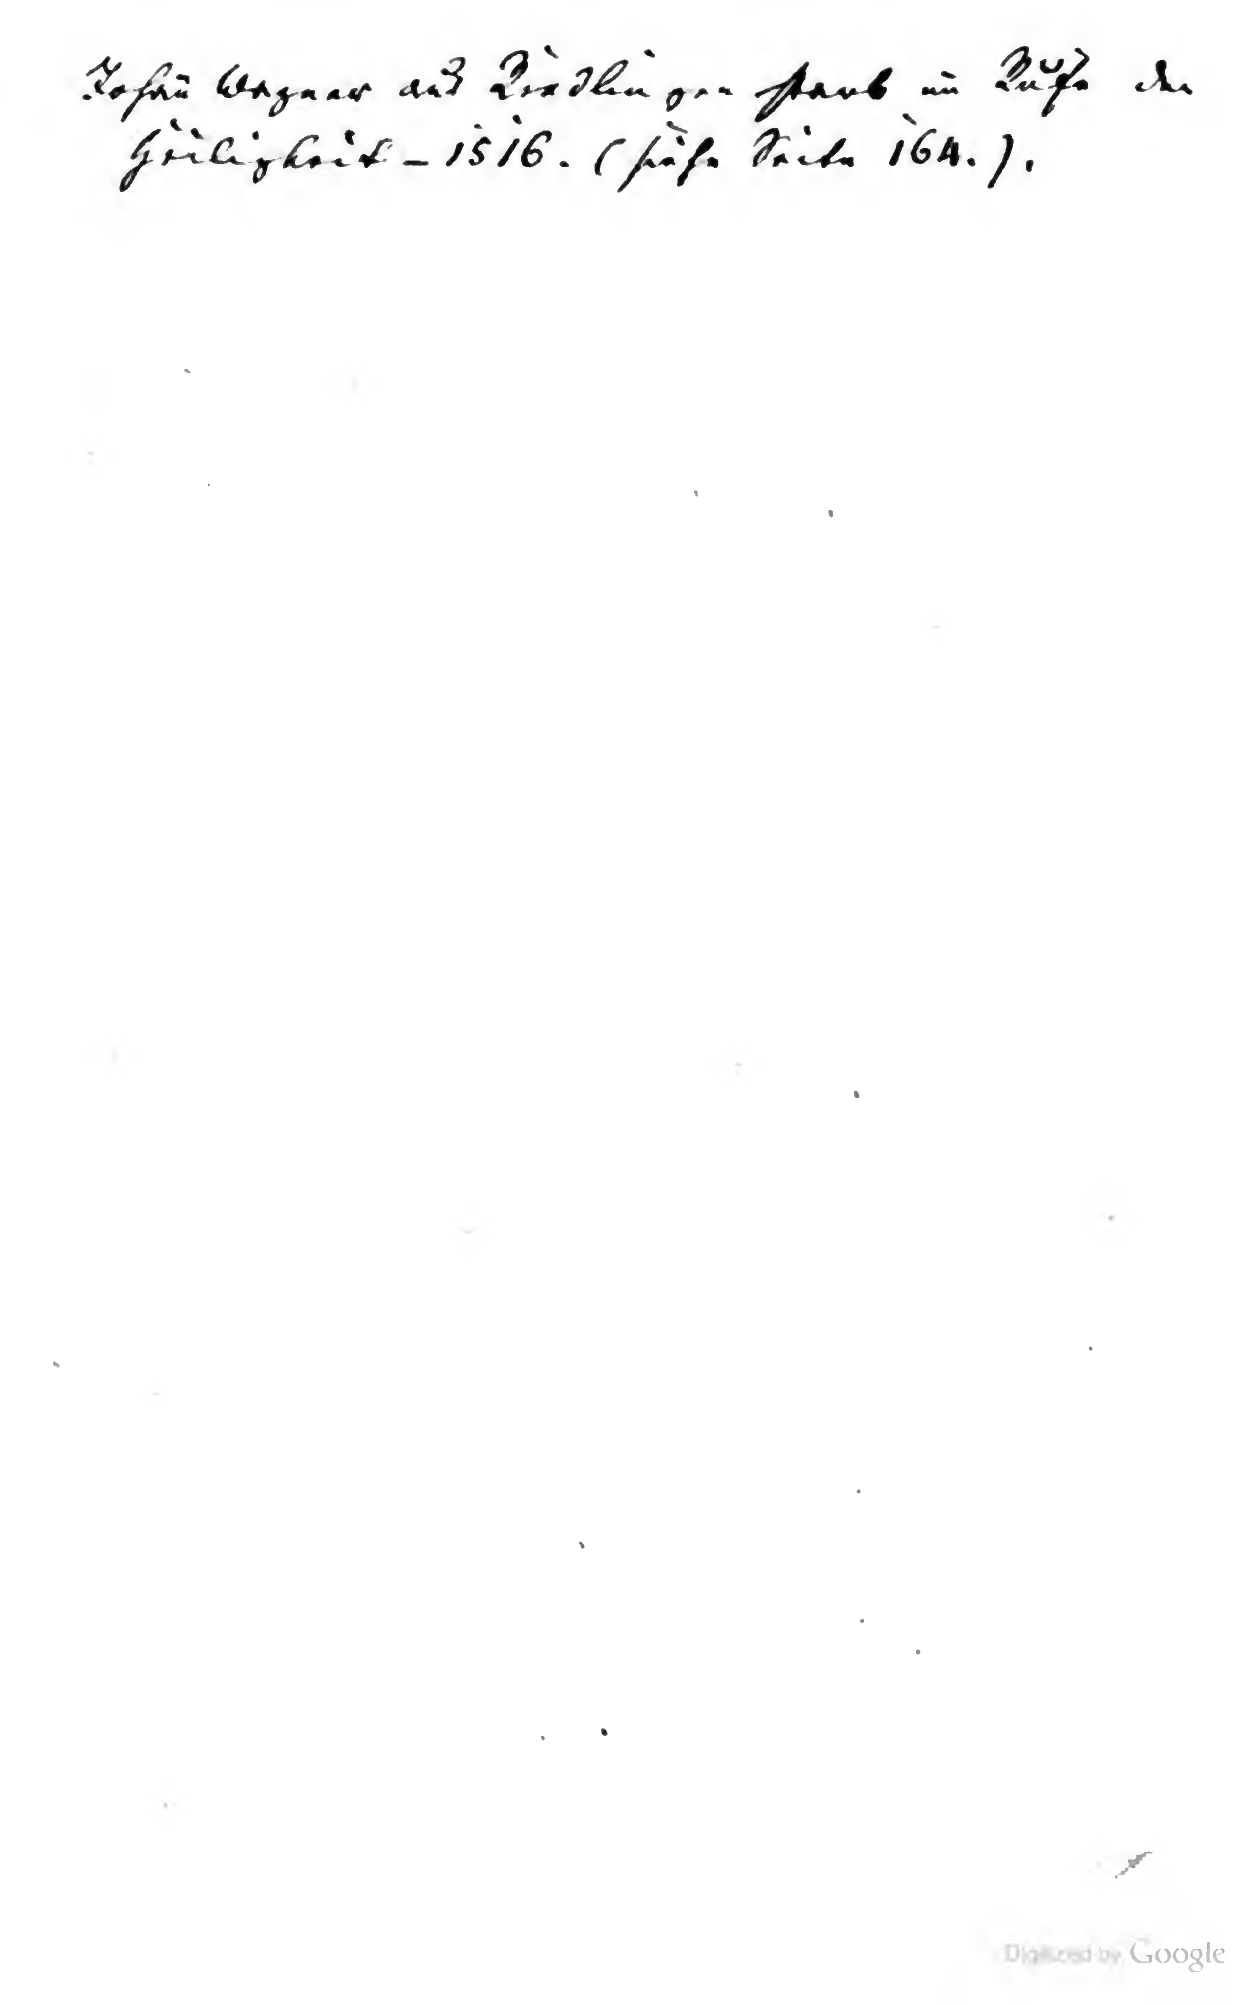 Johan̄ Wagner aus Riedlingen starb im Rufe der
Heiligkeit – 1516. (siehe Seite 164.).
Digitized by Google